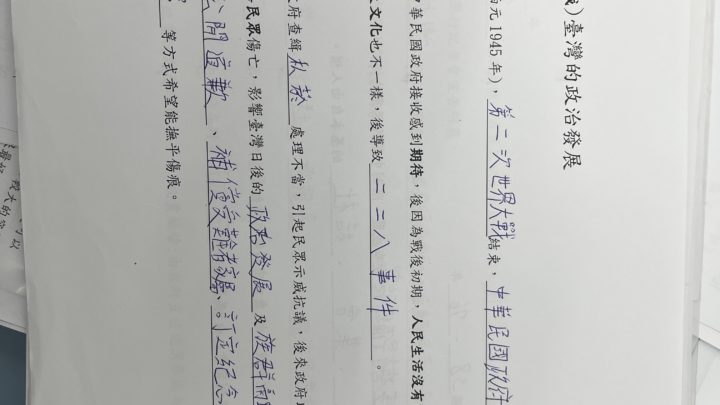 臺灣的政治發展
西元1945年),第二次世界大戰結束,中華民國政府
中華民國政府接收感到期待,後因為戰後初期,人民生活沒有
文化也不一樣,後導致二二八事件。
政府查緝私菸處理不當,引起民眾示威抗議,後來政府
民眾傷亡,影響臺灣日後的政治發展及族群關
公開道歉、補償受難者家屬、訂定紀念
等方式希望能撫平傷痕。